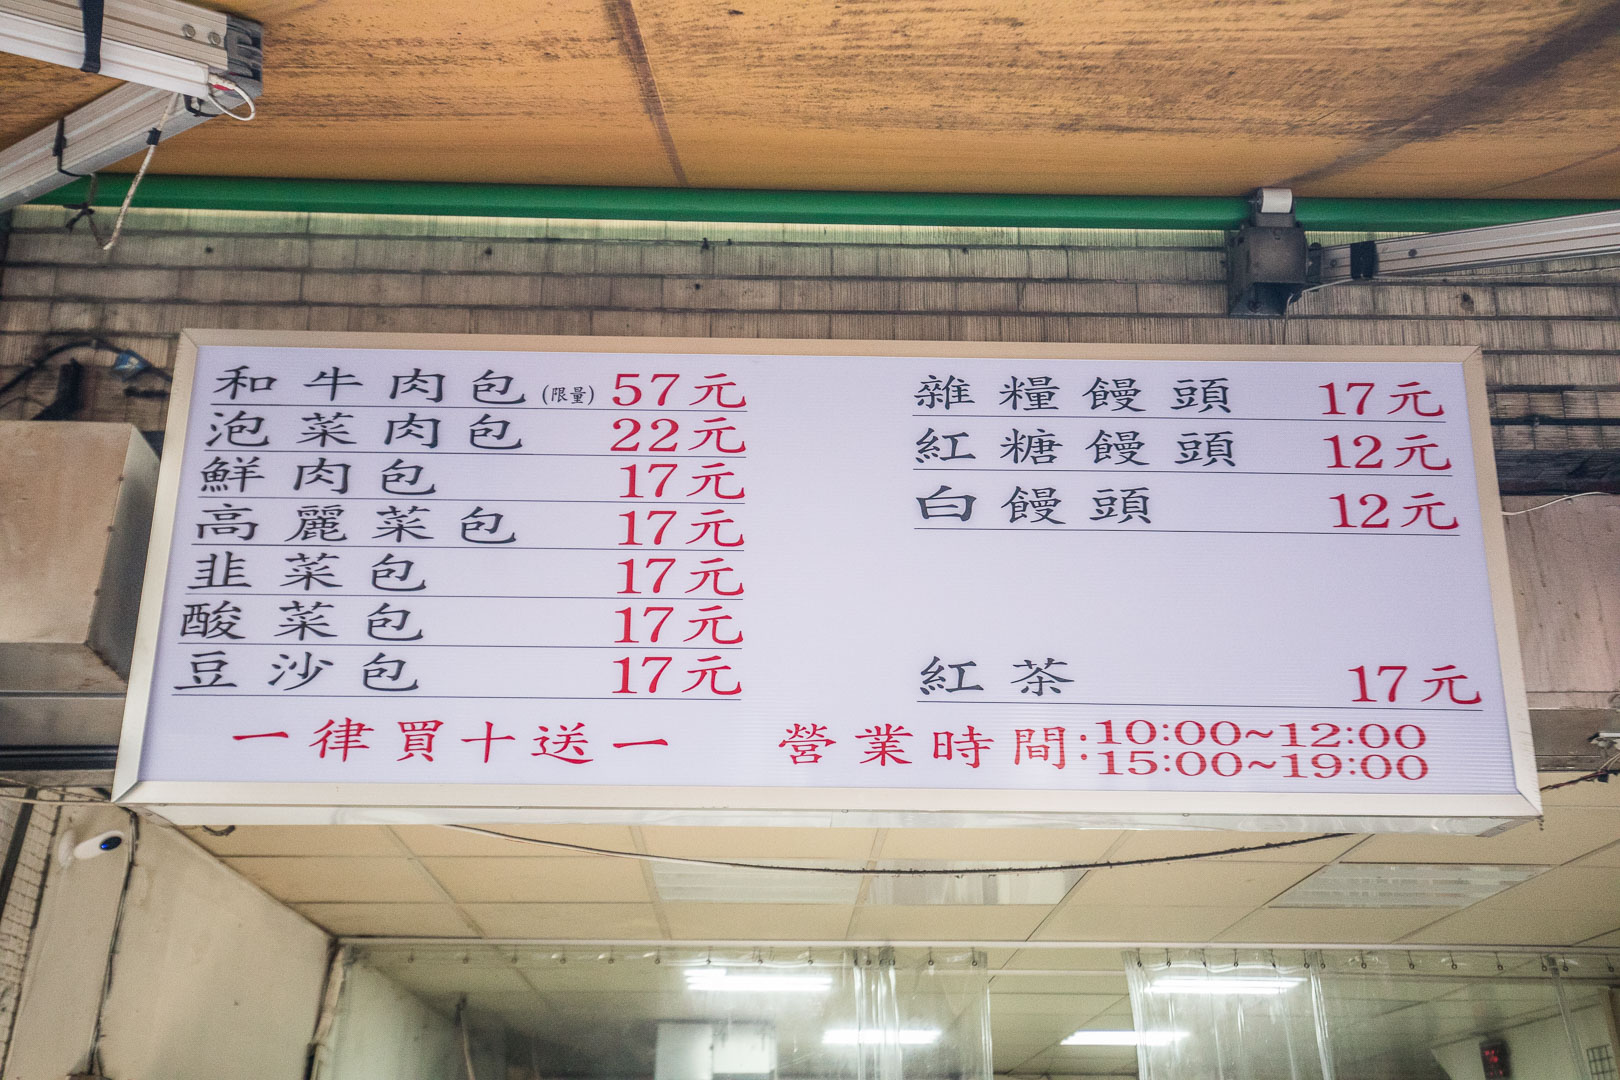 和牛肉包(限量) 57元
泡菜肉包 22元
鮮肉包 17元
高麗菜包 17元
韭菜包 17元
酸菜包 17元
豆沙包 17元
雜糧饅頭 17元
紅糖饅頭 12元
白饅頭 12元
紅茶 17元
一律買十送一
營業時間:10:00~12:00
15:00~19:00